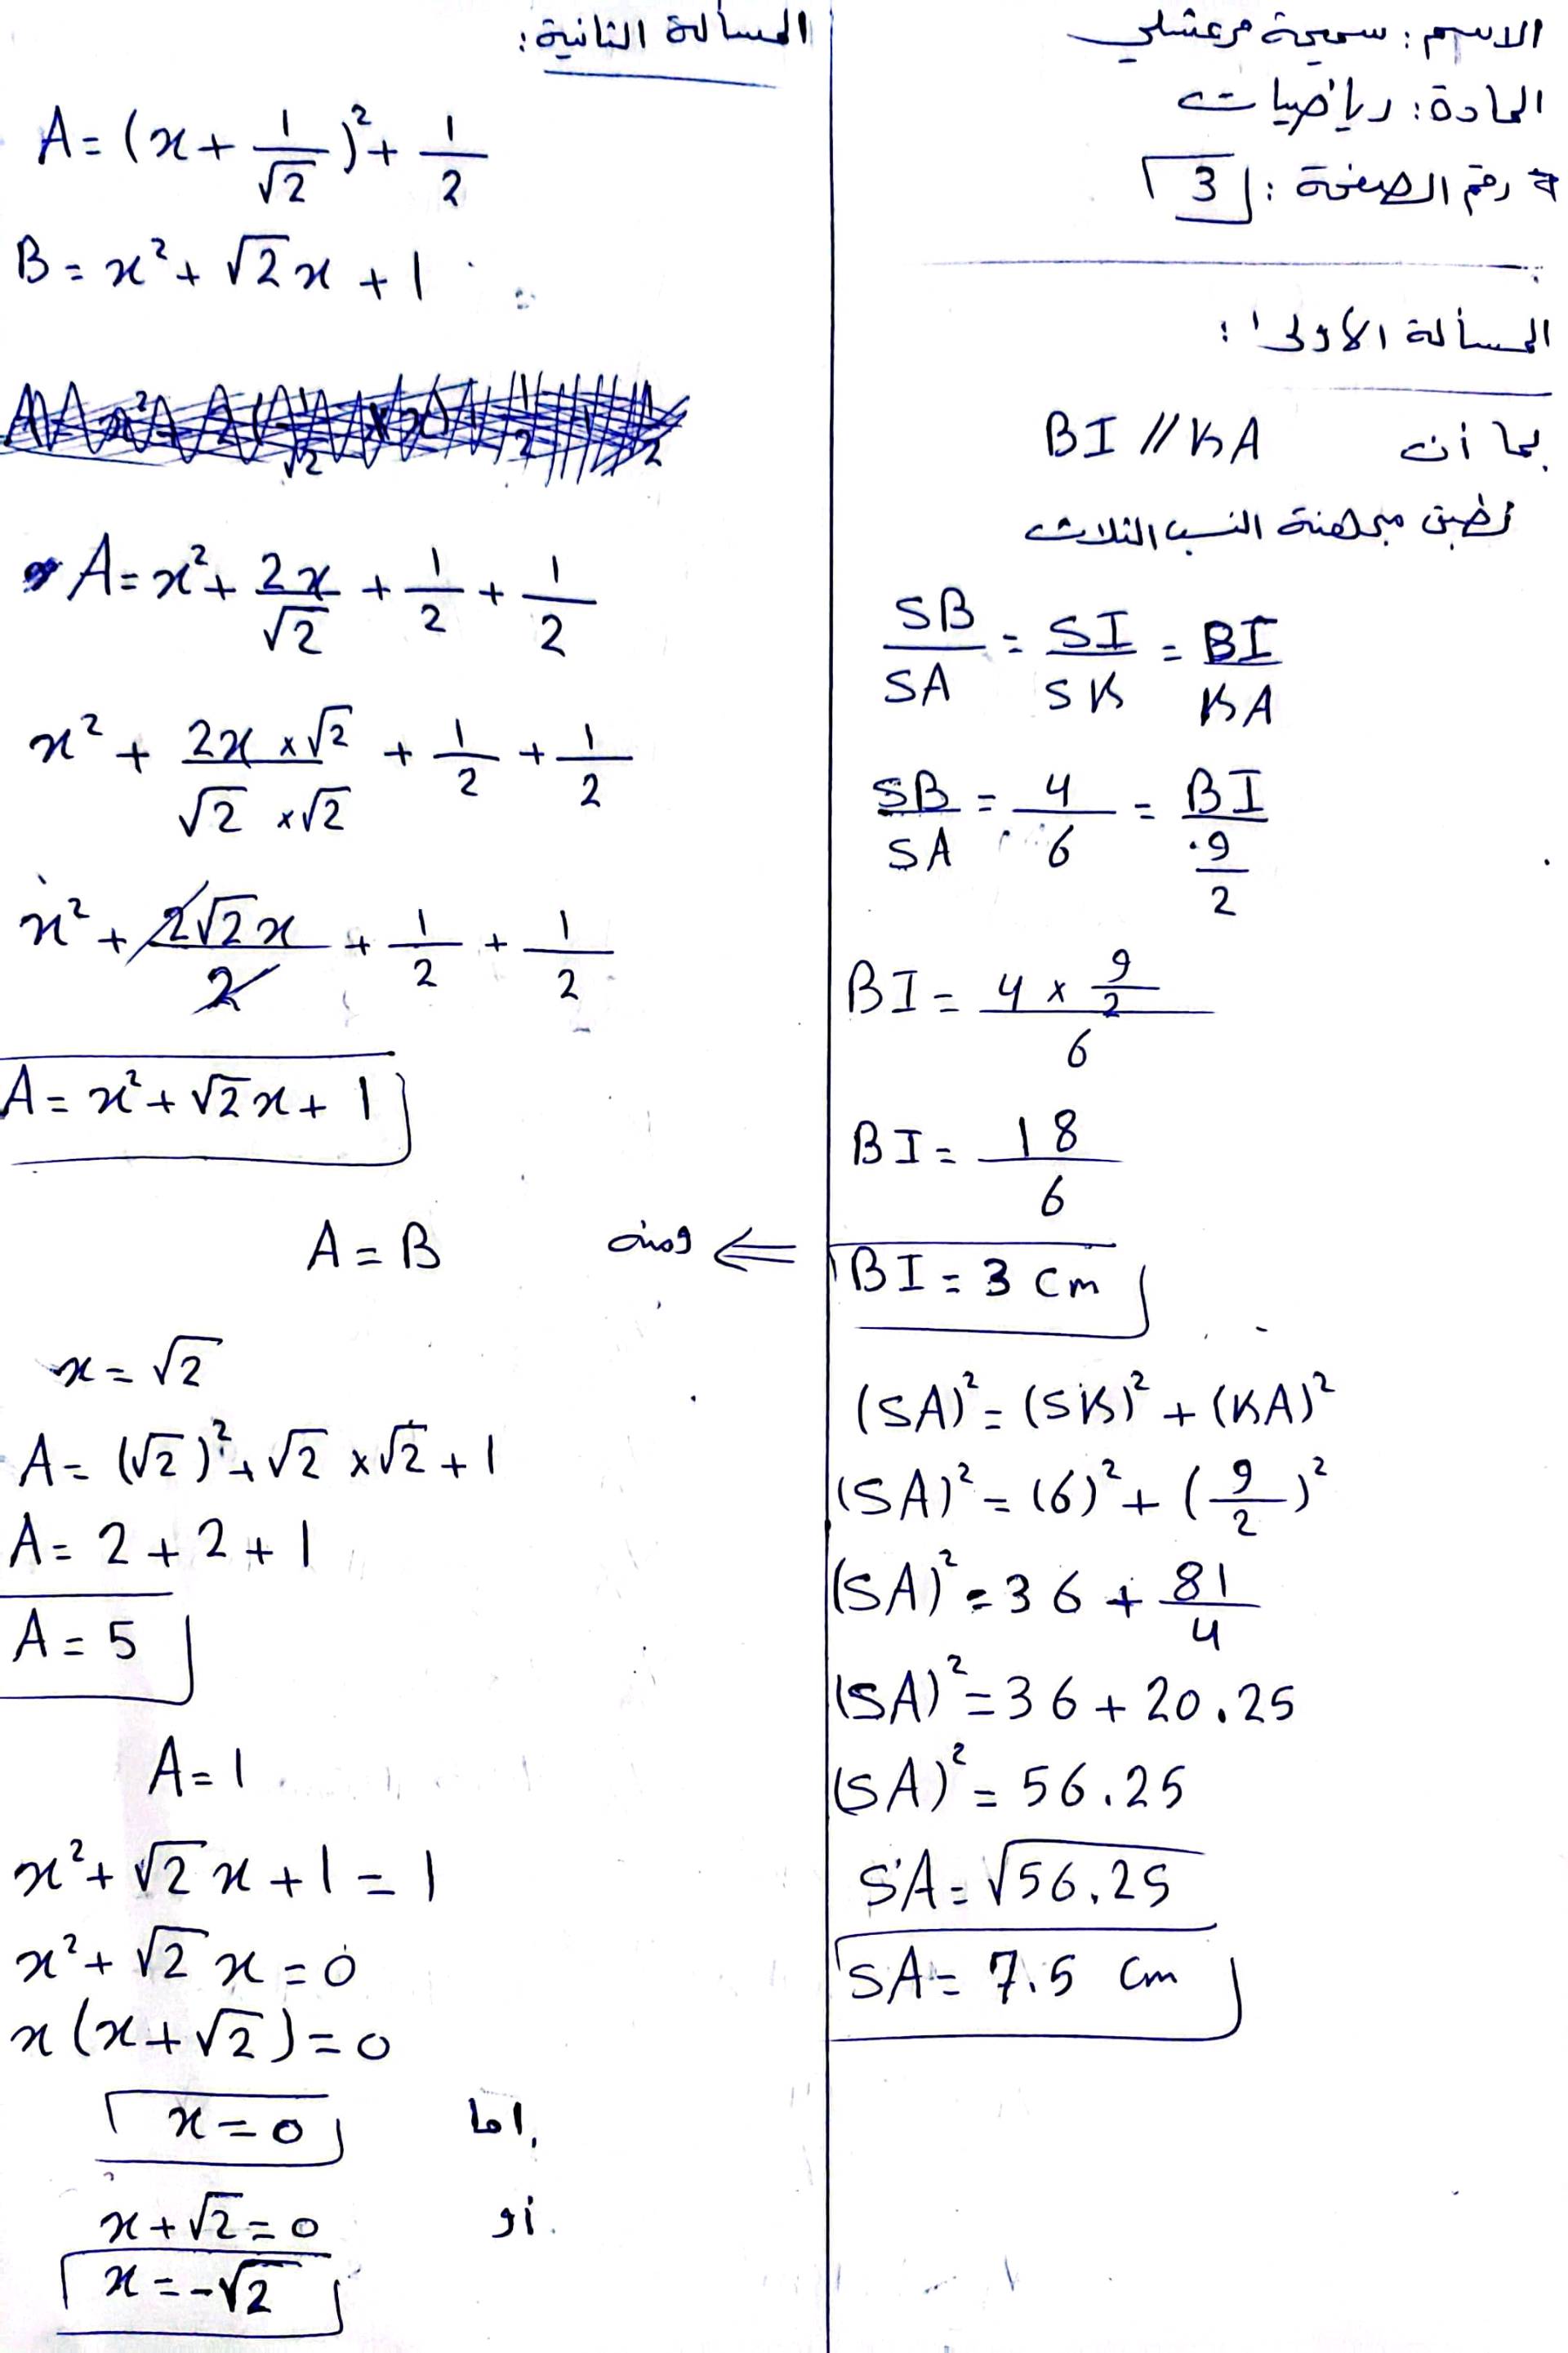 الاسم: سميحة مرعشلي
المادة: رياضيات
رقم الصفحة: 3
المسألة الأولى:
بما أن BI // KA
نطبق مبرهنة النسب الثلاث
SB/SA = SI/SK = BI/KA
SB/SA = 4/6 = BI/(9/2)
BI = (4 × 9/2)/6
BI = 18/6
BI = 3 cm
(SA)² = (SK)² + (KA)²
(SA)² = (6)² + (9/2)²
(SA)² = 36 + 81/4
(SA)² = 36 + 20.25
(SA)² = 56.25
SA = √56.25
SA = 7.5 cm
المسألة الثانية:
A = (x + 1/√2)² + 1/2
B = x² + √2x + 1
A = x² + 2x/√2 + 1/2 + 1/2
x² + (2x × √2)/(√2 × √2) + 1/2 + 1/2
x² + 2√2x/2 + 1/2 + 1/2
A = x² + √2x + 1
⇐ ومنه A = B
x = √2
A = (√2)² + √2 × √2 + 1
A = 2 + 2 + 1
A = 5
A = 1
x² + √2x + 1 = 1
x² + √2x = 0
x(x + √2) = 0
اما x = 0
أو x + √2 = 0
x = -√2